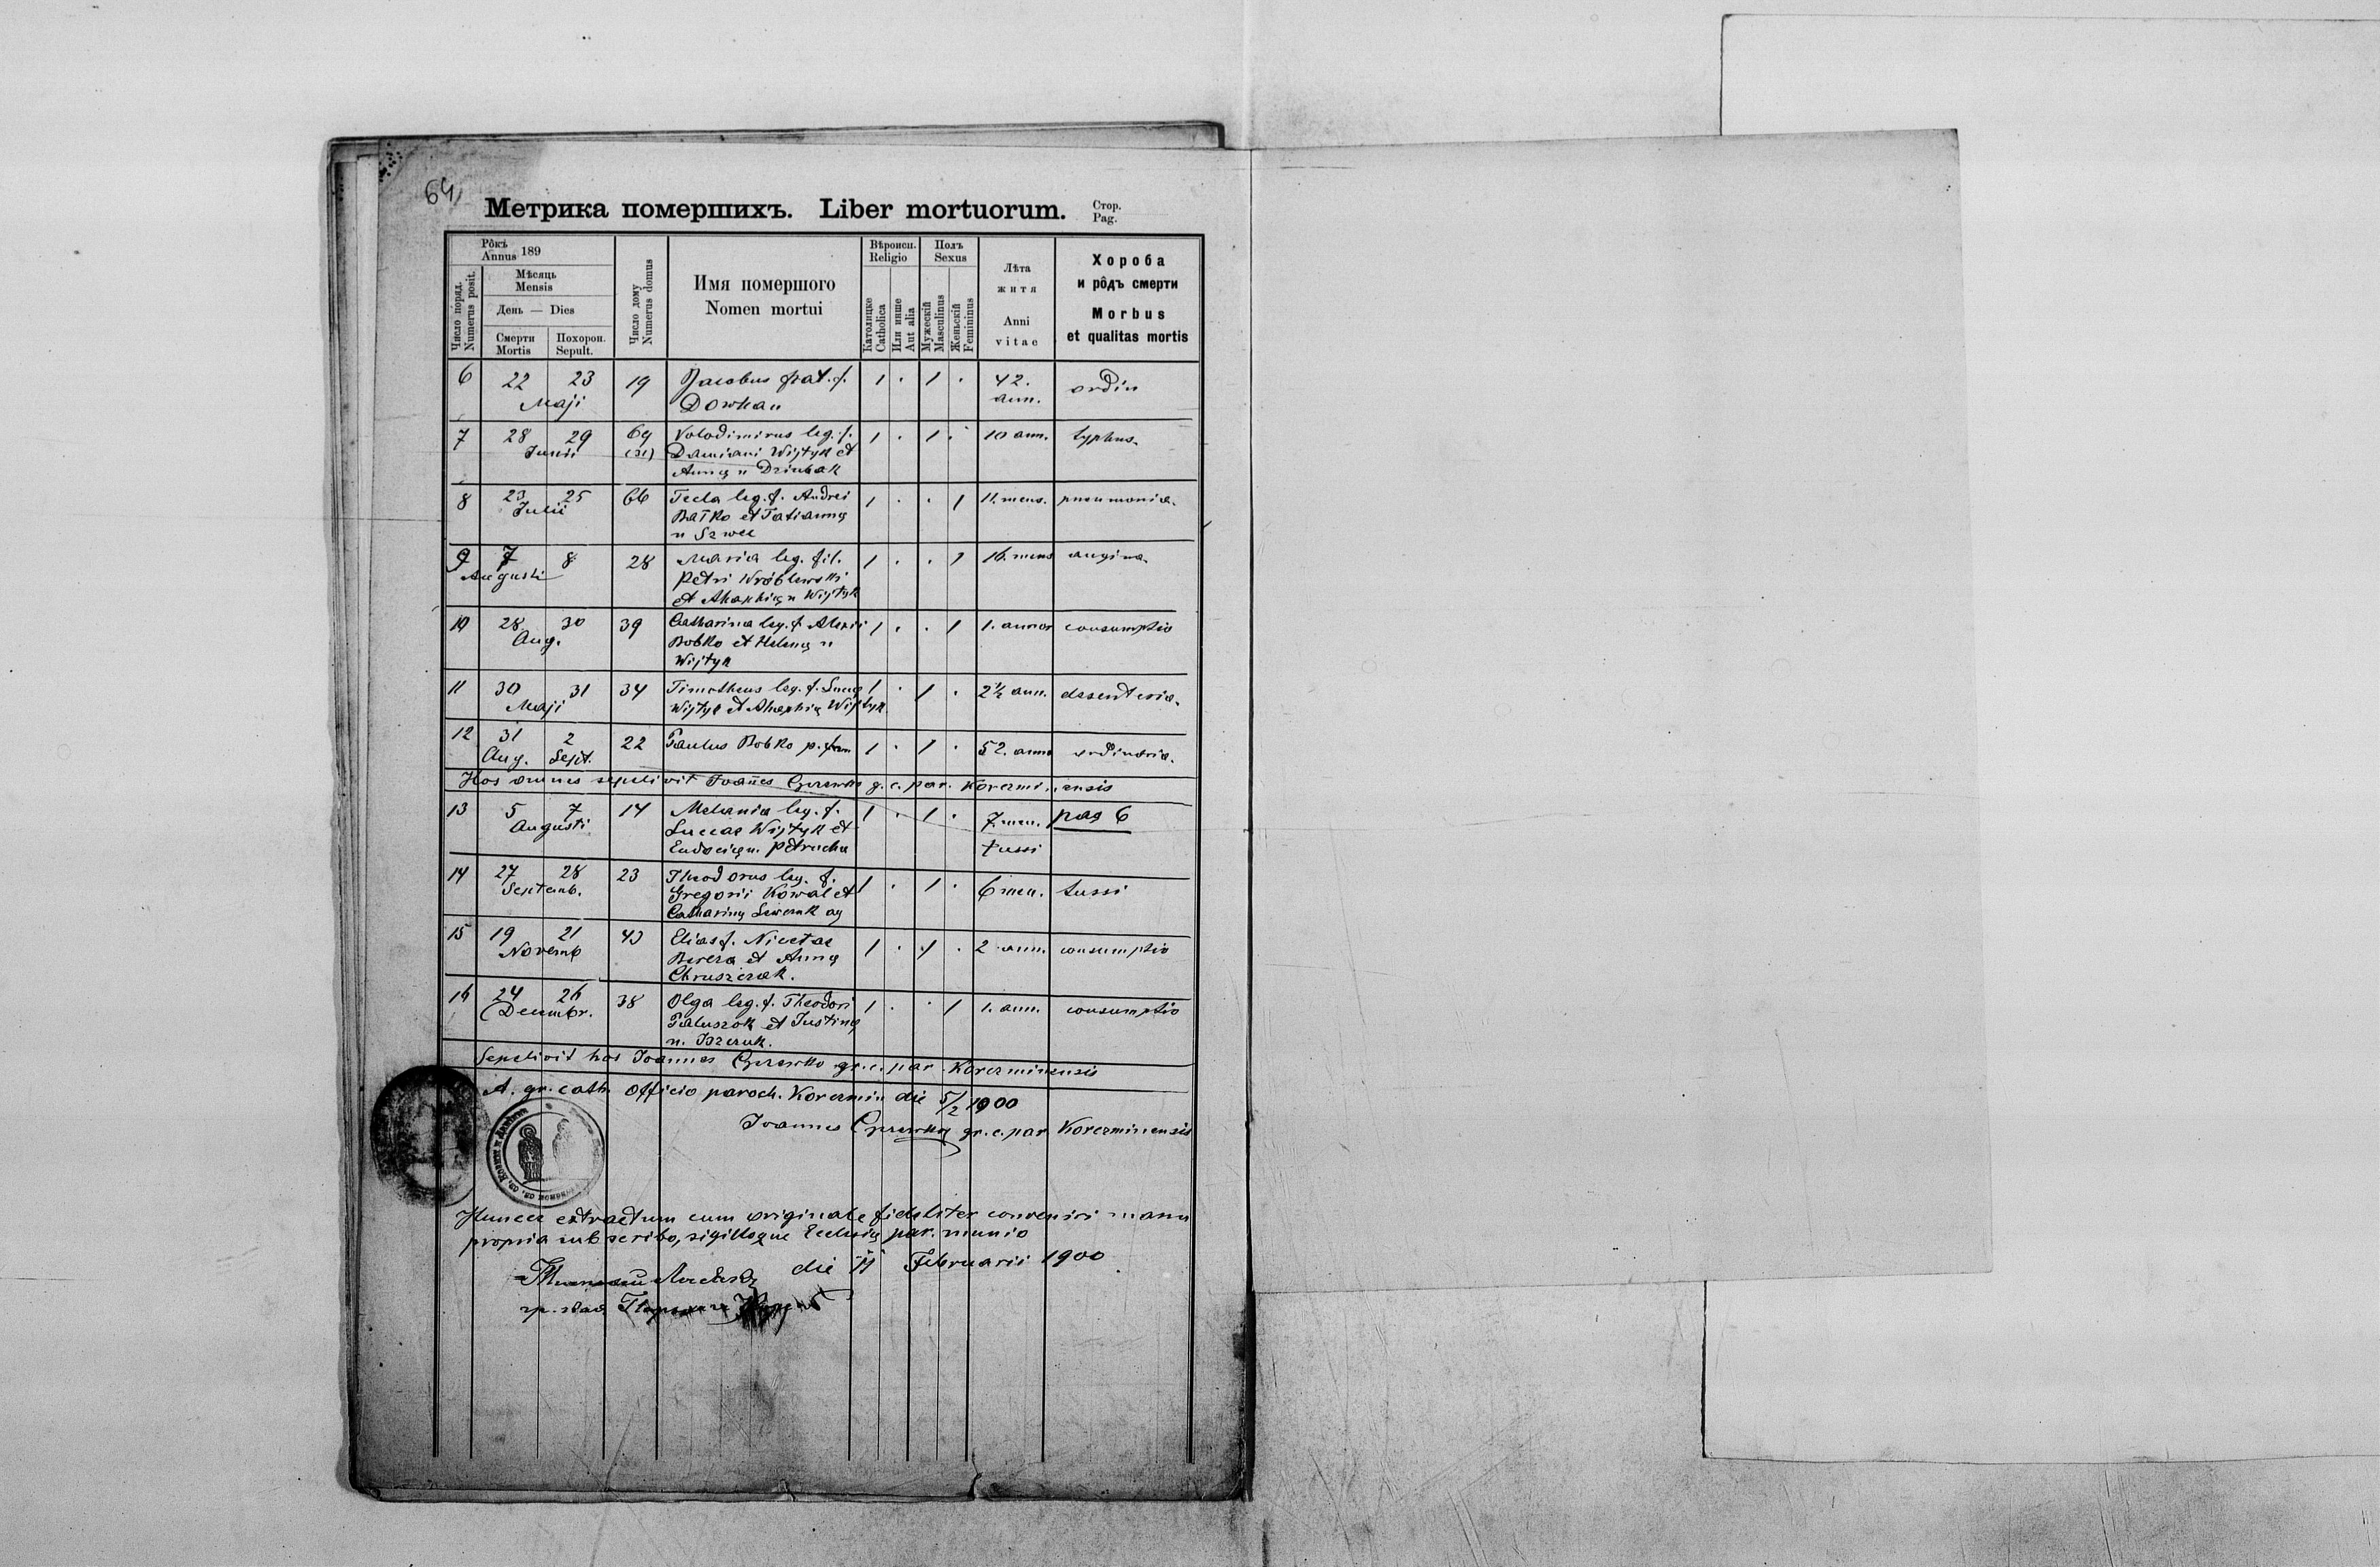 64
Метрика помершихъ. Liber mortuorum.
Стор.
Pag.
Рôкъ
Annus 189
Мѣсяць
Mensis
День — Dies
Число поряд.
Numerus posit.
Смерти
Mortis
Похорон.
Sepult.
Число дому
Numerus domus
Имя помершого
Nomen mortui
Вѣроисп.
Religio
Католицке
Catholica
Или инше
Aut alia
Полъ
Sexus
Мужескій
Masculinus
Женьскій
Femininus
Лѣта
житя
Anni
vitae
Хороба
и рôдъ смерти
Morbus
et qualitas mortis
6 22 23 19 Jacobus f. 1 . 1 . 42. ordin
Maji Dowhan ann.
7 28 29 69 Volodimirus leg. f. 1 . 1 . 10 ann. typhus
Junii Damiani Wijtyk et
Annę n Dziubak
8 23 25 66 Tecla leg. f. Andrei 1 . . 1 11. mens. pneumonia.
Julii Baïko et Tatiannę
n Szwec
9 7 8 28 Maria leg. fil. 1 . . 1 16. mens angina
Augusti Petri Wróblewski
et Ahaphię n Wijtyk
10 28 30 39 Catharina leg. f. Alexii 1 . . 1 1. annor consumptio
Aug. Bobko et Helenę n
Wijtyk
11 30 31 34 Timotheus leg. f. Lucę 1 . 1 . 2½ ann. desenteria.
Maji Wijtyk et Ahaphię Wijtyk
12 31 2 22 Paulus Bobko 1 . 1 . 52. anno ordinaria.
Aug. Sept.
Hos omnes sepelivit Joañes g. c. par. Korczminensis
13 5 7 14 Melania leg. f. 1 . 1 . 7 men. pag 6
Augusti Luccae Wijtyk et
Eudocię n. Petrucha tussi
14 27 28 23 Theodorus leg. f. 1 . 1 . 6 men. tussi
Septemb. Gregorii Kowal et
Catharinę
15 19 21 43 Elias f. Nicetae 1 . 1 . 2 ann. consumptio
Novemb Bereza et Annę
Chruszczak.
16 24 26 38 Olga leg. f. Theodori 1 . . 1 1. ann. consumptio
Decembr. Paluszok et Justinę
n.
Sepelivit hos Joannes gr. c. par. Korczminensis
A. gr. cath. Officio paroch. Korczmin die 5/2 1900
Joannes gr. c. par Korczminensis
Huncce extractum cum originale fideliter conveniri manu
propria subscribo, sigilloque Ecclesię par. munio
die 11 Februarii 1900